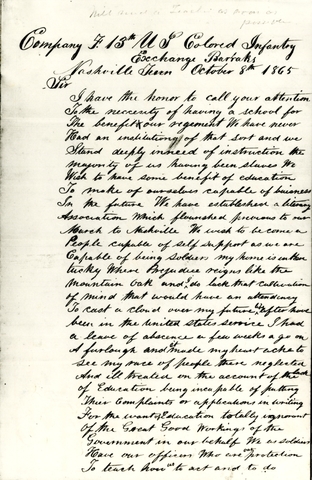 Will send a Teacher as soon as possible
Company F. 13th U S Colored Infantry
Exchange Barraks
Nashville Tenn October 8th 1865
Sir
I have the honor to call your attention
To the necesity of having a school for
The benefit of our regement We have never
Had an institutiong of that sort and we
Stand deeply inneed of instruction the
majority of us having been slaves We
Wish to have some benefit of education
To make of ourselves capable of buisness
In the future We have estableshed a literary
Association which flourished previous to our
March to Nashville We wish to become a
People capable of self support as we are
Capable of being soldiers my home is in Ken
tucky Where Prejudice reigns like the
mountain Oak and I do lack that cultivation
of mind that would have an attendency
To cast a cloud over my future life after have
been in the United States service I had
a leave of abscence a few weeks a go on
A furlough and it made my heart ache to
see my race of people there neglected
And ill treated on the account of the lack
of Education being incapable of putting
Thier complaints or applications in writing
For the want of Education totally ignorant
Of the Great Good Workings of the
Government in our behalf We as soldiers
Have our officers Who are our protection
To teach how us to act and to do